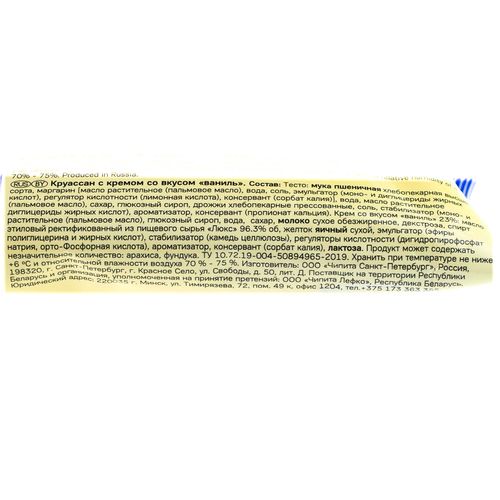 70% - 75%. Produced in Russia.
RUS BY Круассан с кремом со вкусом «ваниль». Состав: Тесто: мука пшеничная хлебопекарная
сорта, маргарин [масло растительное (пальмовое масло), вода, соль, эмульгатор (моно- и диглицериды жирных
кислот), регулятор кислотности (лимонная кислота), консервант (сорбат калия)], вода, масло растительное
(пальмовое масло), сахар, глюкозный сироп, дрожжи хлебопекарные прессованные, соль, стабилизатор (моно- и
диглицериды жирных кислот), ароматизатор, консервант (пропионат кальция). Крем со вкусом «ваниль» 23%: масло
растительное (пальмовое масло), сахар, глюкозный сироп, вода, сахар, молоко сухое обезжиренное, декстроза, спирт
этиловый ректификованный из пищевого сырья «Люкс» 96.3% об, желток яичный сухой, эмульгатор (эфиры
полиглицерина и жирных кислот), стабилизатор (камедь целлюлозы), регуляторы кислотности (дигидропирофосфат
натрия, орто-Фосфорная кислота), ароматизатор, консервант (сорбат калия), лактоза. Продукт может содержать
незначительное количество: арахиса, фундука. ТУ 10.72.19-004-50894965-2019. Хранить при температуре не ниже
+6 °C и относительной влажности воздуха 70 % - 75 %. Изготовитель: ООО «Чипита Санкт-Петербург», Россия,
198320, г. Санкт-Петербург, г. Красное Село, ул. Свободы, д. 50, лит. Д. Поставщик на территории Республики
Беларусь и организация, уполномоченная на принятие претензий: ООО «Чипита Лефко», Республика Беларусь.
Юридический адрес: 220035 г. Минск, ул. Тимирязева, 72, пом. 49 к. офис 1204, тел.+375 173 363